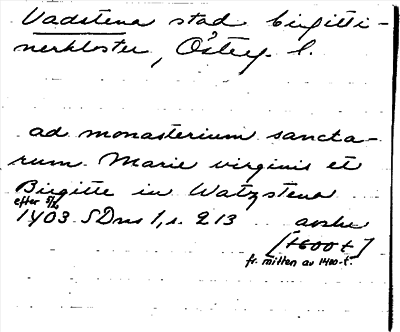 Vadstena stad birgitti-
nerkloster, Österg. l.
ad monasterium sancta-
rum Marie virginis et
Birgitte in Watzstena
efter 5/6
1403 SDns 1, s. 213 avskr
[+600 t]
fr. mitten av 1400-t.